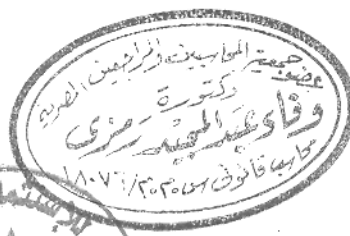 عضو جمعية المحاسبين والمراجعين المصرية
دكتورة
وفاء عبد المجيد رمزى
محاسب قانونى س.م.م